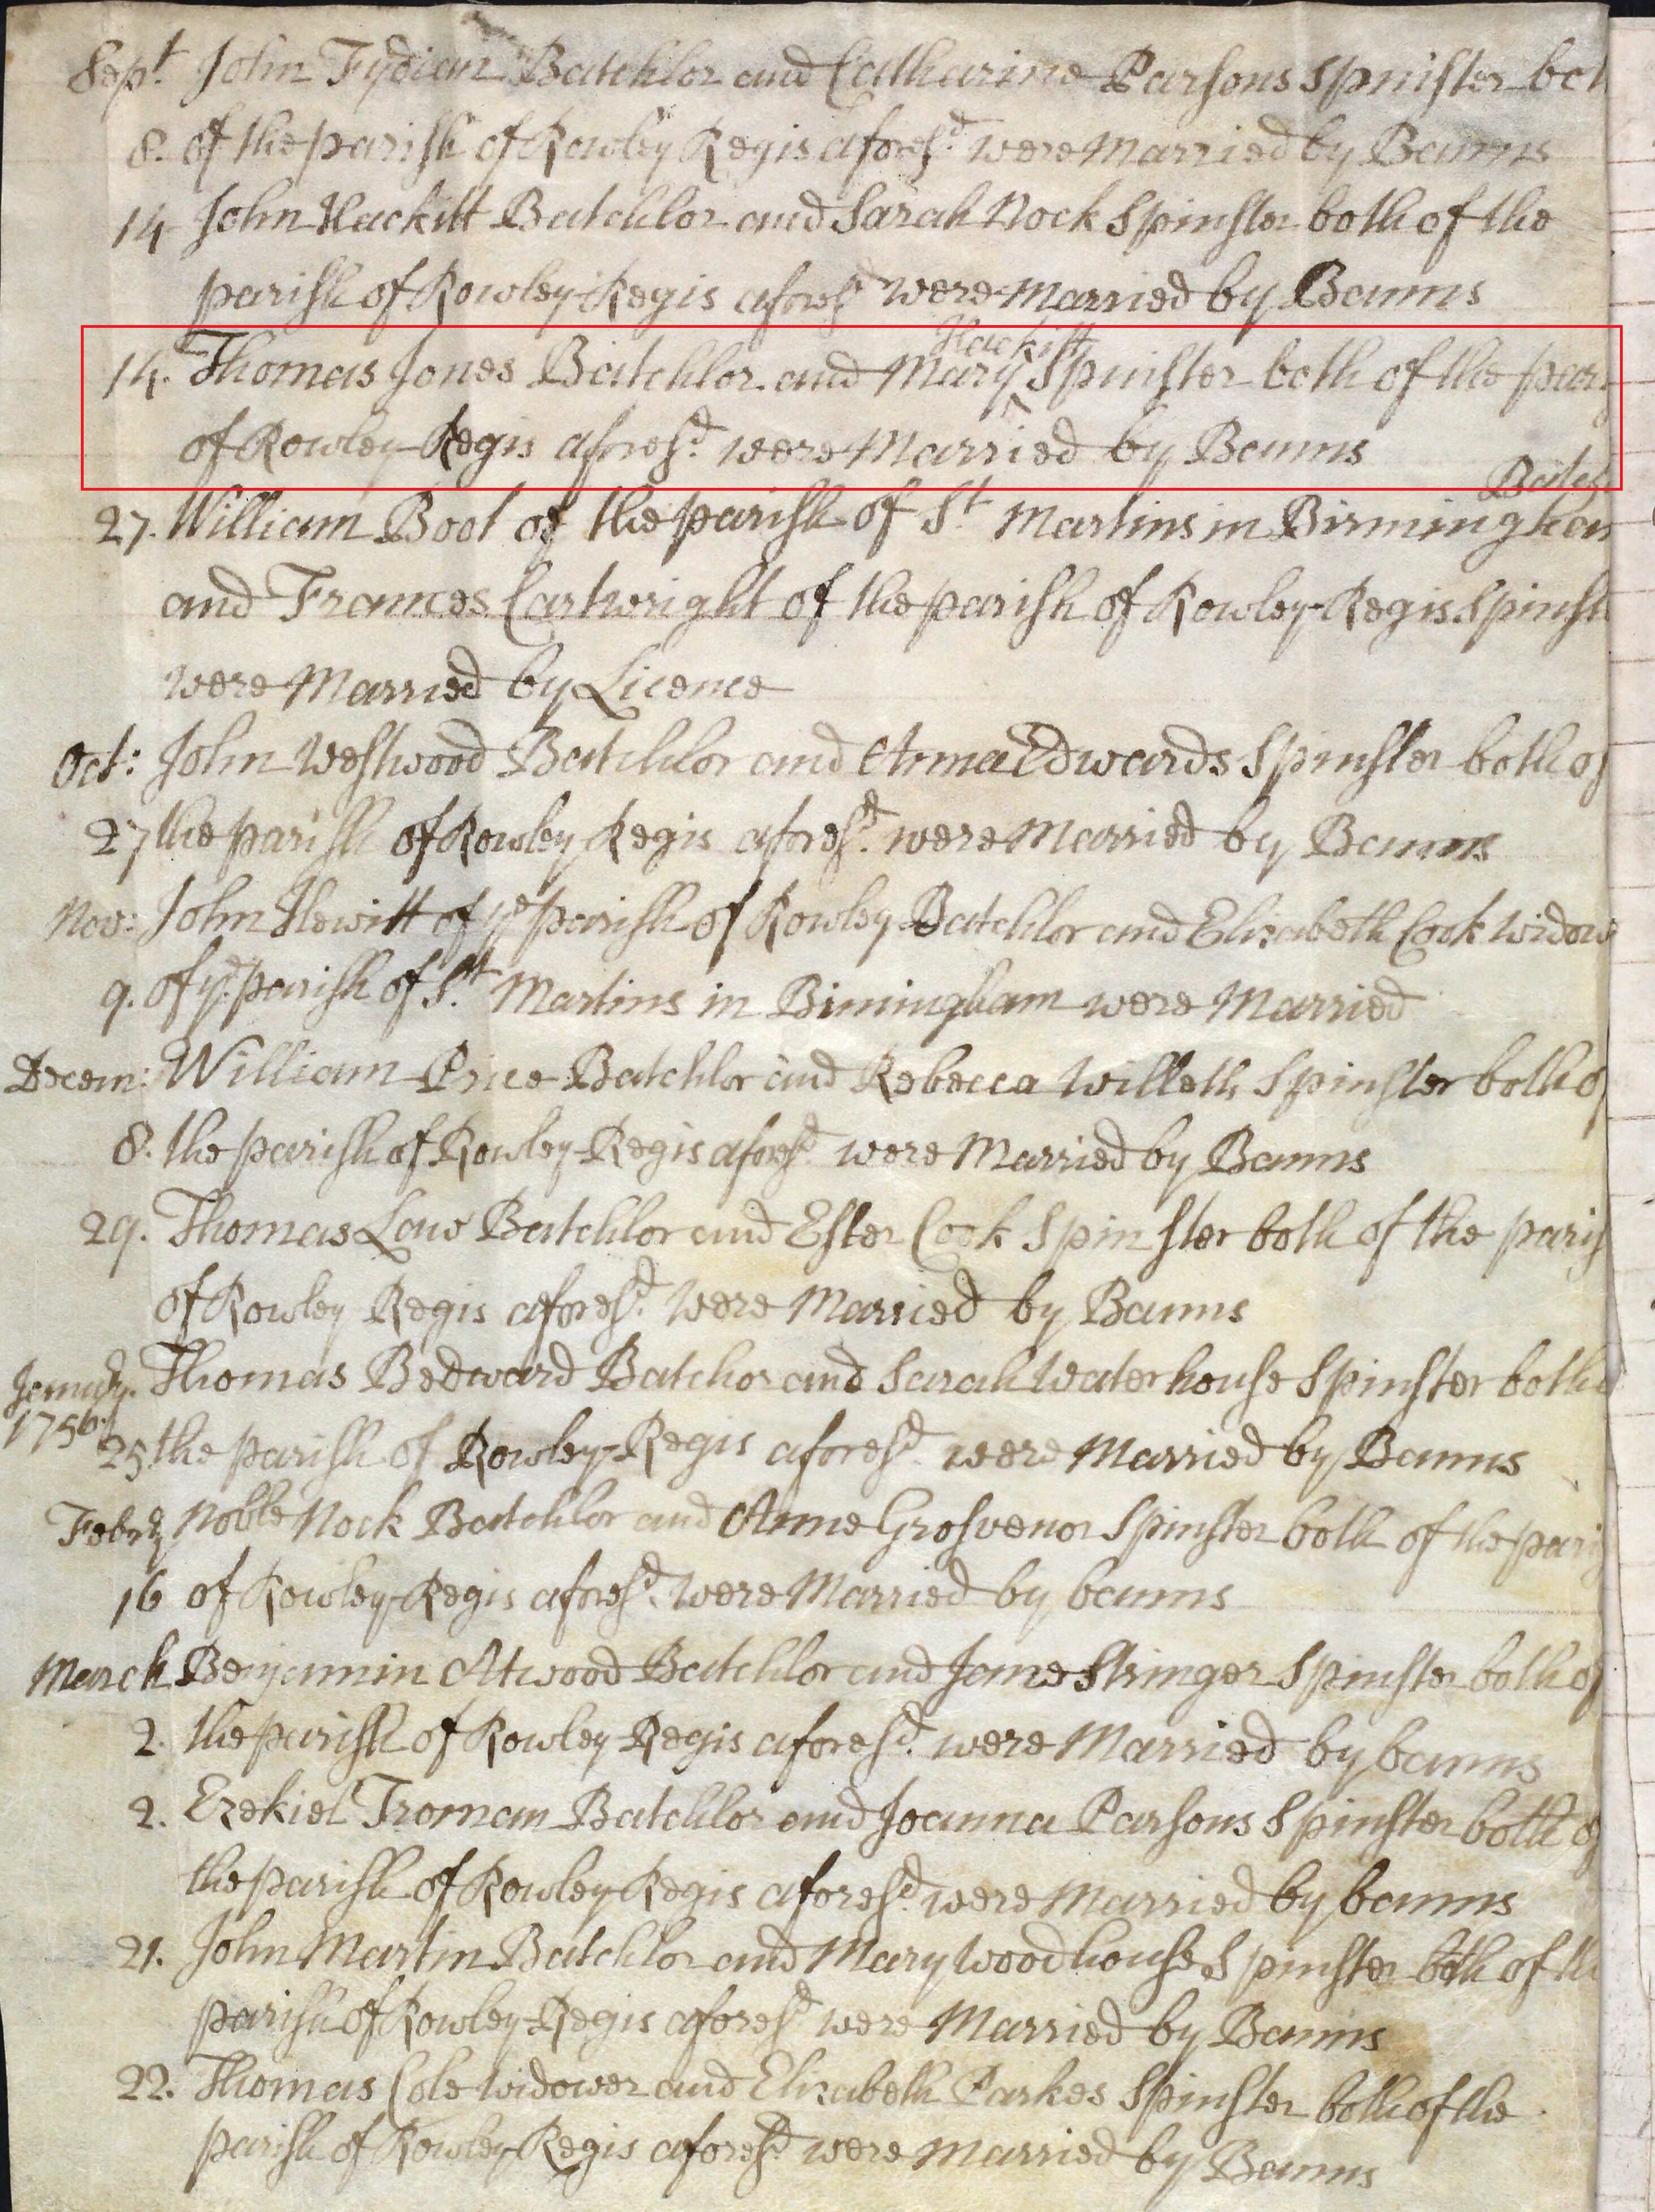 Sept. John Fydian Batchlor and Catharine Parsons Spinster bot
8. of the parish of Rowley Regis aforesd. were Married by Banns
14 John Hackitt Batchlor and Sarah Nock Spinster both of the
parish of Rowley-Regis aforesd. were Married by Banns
Hackitt
14. Thomas Jones Batchlor and Mary ^ Spinster both of the par
of Rowley-Regis aforesd. were Married by Banns
Batch
27. William Boot of the parish of St. Martins in Birmingham
and Frances Cartwright of the parish of Rowley-Regis Spinst
were Married by Licence
Oct: John Westwood Batchlor and Anna Edwards Spinster both of
27 the parish of Rowley Regis aforesd. were Married by Banns
Nov: John Hewitt of ye parish of Rowley Batchlor and Elizabeth Cook Widow
9. of ye parish of St. Martins in Bimingham were Married
Decem: William Price Batchlor and Rebecca Willeth Spinster both of
8. the parish of Rowley-Regis aforesd. were Married by Banns
29. Thomas Law Batchlor and Ester Cook Spinster both of the paris
of Rowley Regis aforesd. were Married by Banns
Januay. Thomas Bedward Batchor and Sarah Waterhouse Spinster both o
1756.
25. the parish of Rowley-Regis aforesd. were Married by Banns
Febry Noble Nock Batchlor and Anne Grosvenor Spinster both of the pari
16 of Rowley-Regis aforesd. were Married by banns
March Benjamin Atwood Batchlor and Jane Stringer Spinster both of
2. the parish of Rowley Regis aforesd. were Married by banns
2. Ezekiel Troman Batchlor and Joanna Parsons Spinster both o
the parish of Rowley Regis aforesd. were Married by banns
21. John Martin Batchlor and Mary Woodhouse Spinster both of th
parish of Rowley-Regis aforesd. were Married by Banns
22. Thomas Cole Widower and Elizabeth Parkes Spinster both of the
parish of Rowley-Regis aforesd. were Married by Banns